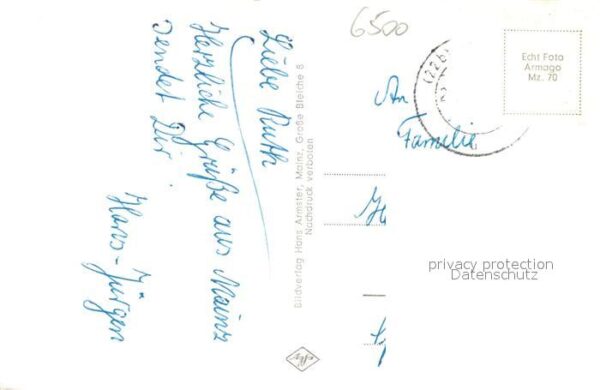 6500
Liebe Ruth
Herzliche Grüße aus Mainz
sendet Dir
Hans-Jürgen
Bildverlag Hans Armster, Mainz, Große Bleiche 8
Nachdruck verboten
Echt Foto
Armago
Mz. 70
An
Familie
privacy protection
Datenschutz